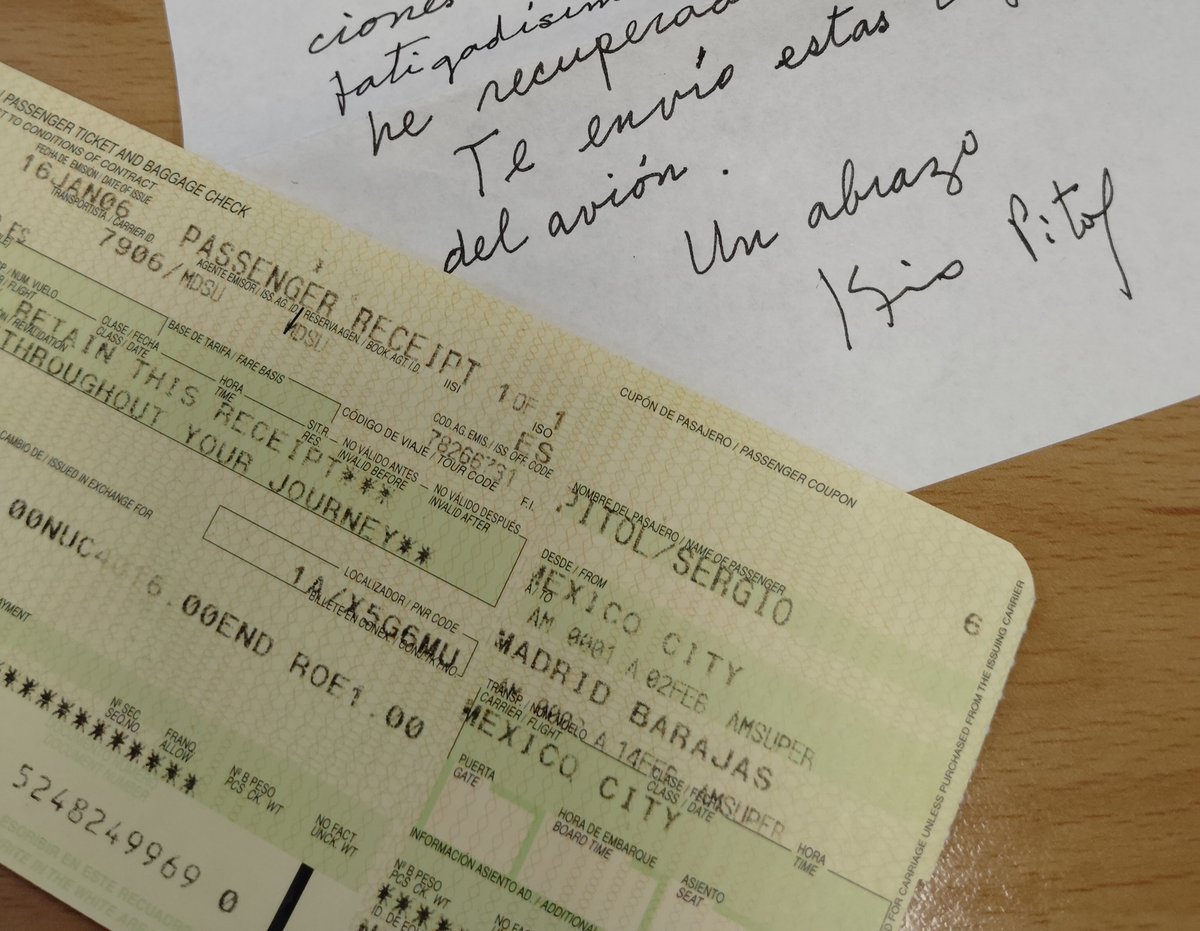 ciones
fatigadísim
he recuperad
Te envío estas
del avión.
Un abrazo
Pitol
PASSENGER TICKET AND BAGGAGE CHECK
T TO CONDITIONS OF CONTRACT
FECHA DE EMISIÓN / DATE OF ISSUE
16JAN06
TRANSPORTISTA / CARRIER ID.
7906/MDSU
PASSENGER RECEIPT 1 OF 1
AGENTE EMISOR / ISS. AG. ID. / RESERVA AGEN. / BOOK. AGT. I.D.
MDSU
IISI
ISO
ES
ES
NUM. VUELO
FLIGHT
CLASE / FECHA
CLASS / DATE
BASE DE TARIFA / FARE BASIS
HORA
TIME
SIT.R.
RES
CÓDIGO DE VIAJE / TOUR CODE
COD. AG. EMIS. / ISS OFF. CODE
78266731
NO VÁLIDO ANTES
INVALID BEFORE
NO VÁLIDO DESPUÉS
INVALID AFTER
F.I.
RETAIN THIS RECEIPT***
THROUGHOUT YOUR JOURNEY**
CAMBIO DE / ISSUED IN EXCHANGE FOR
LOCALIZADOR / PNR CODE
1A/X5G6MU
00END ROE1.00
CUPÓN DE PASAJERO / PASSENGER COUPON
NOMBRE DEL PASAJERO / NAME OF PASSENGER
PITOL/SERGIO
DESDE / FROM
MEXICO CITY
6
A / TO
AM 0001 A 02FEB AMSUPER
MADRID BARAJAS
TRANSP. / NUM. VUELO
CARRIER / FLIGHT
A 14FEB AMSUPER
MEXICO CITY
CLASE / FECHA
CLASS / DATE
HORA
TIME
PUERTA
GATE
HORA DE EMBARQUE
BOARD TIME
ASIENTO
SEAT
INFORMACIÓN ASIENTO AD. / ADDITIONAL
PAYMENT
Nº SEC
SEQ.NO
FRANQ
ALLOW
Nº B PESO
PCS CK. WT
NO FACT
UNCK. WT
Nº B PESO
PCS CK. WT
5248249969 0
FOR CARRIAGE UNLESS PURCHASED FROM THE ISSUING CARRIER